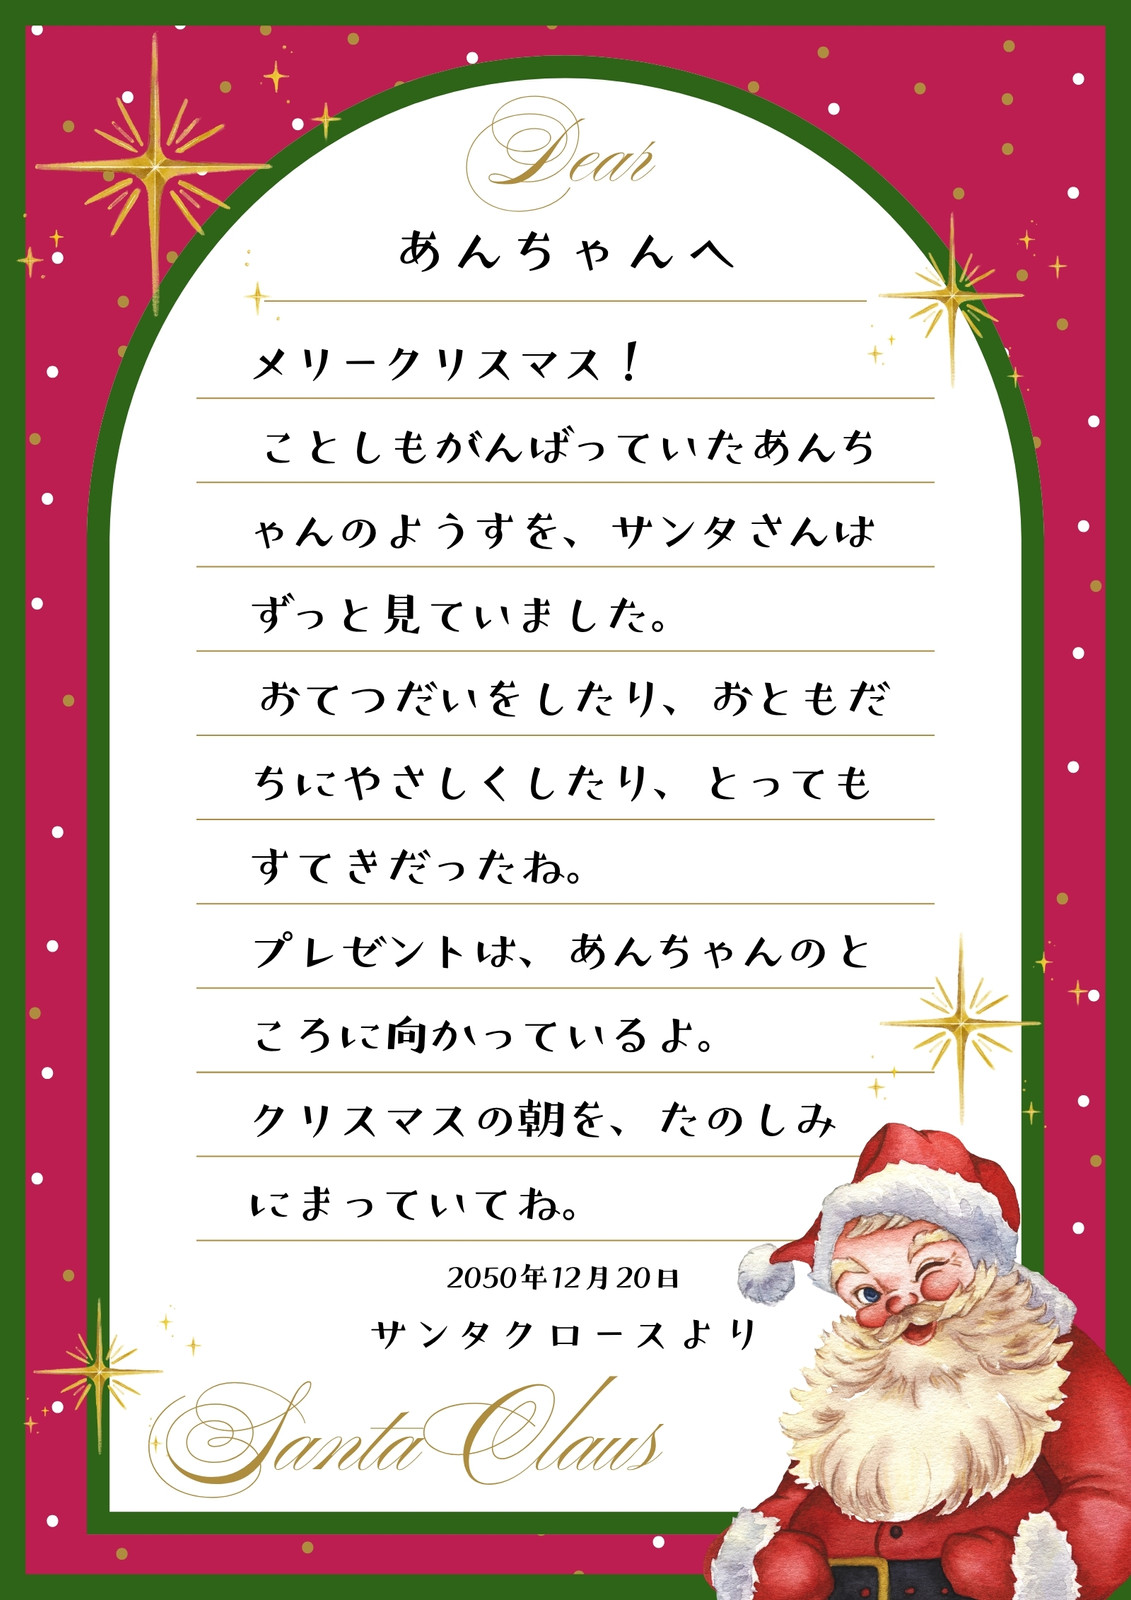 Dear
あんちゃんへ
メリークリスマス！
ことしもがんばっていたあんち
ゃんのようすを、サンタさんは
ずっと見ていました。
おてつだいをしたり、おともだ
ちにやさしくしたり、とっても
すてきだったね。
プレゼントは、あんちゃんのと
ころに向かっているよ。
クリスマスの朝を、たのしみ
にまっていてね。
2050年12月20日
サンタクロースより
Santa Claus